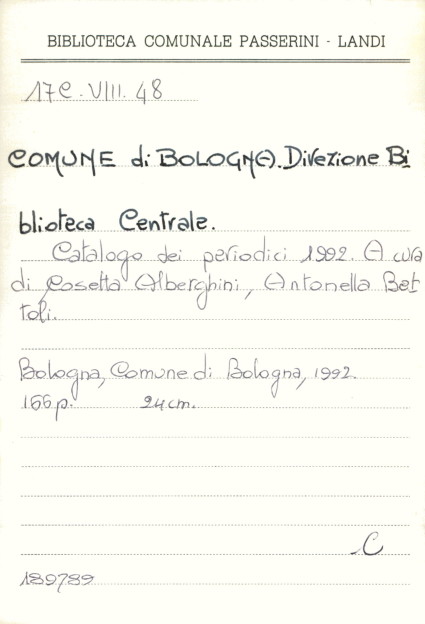 BIBLIOTECA COMUNALE PASSERINI - LANDI
17C. VIII. 48
COMUNE di BOLOGNA. Direzione Bi
blioteca Centrale.
Catalogo dei periodici 1992. A cura
di Cosetta Alberghini, Antonella Bet
toli.
Bologna, Comune di Bologna, 1992.
166 p. 24 cm.
C
189789